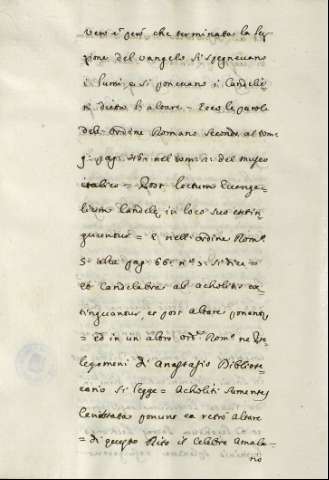 vero è però che terminata la le-
zione del vangelo si spegnevano
i lumi, e si ponevano i candelieri
dietro l'altare = Ecco le parole
dell'ordine Romano secondo al tomo
pag. nel tom. 2. del museo
italico = Post lectum Evange-
lium Candelę in loco suo extin
guuntur = E nell'ordine Rom.º
5. alla pag. 66. n.º si dice =
et Candelabra ab acholitis ex-
tinguantur, et post altare ponantur
= ed in un altro ord.e Rom.º ne Pro-
legomeni di Anastasio Bibliote-
cario si legge = Acholiti sumentes
Cerostata ponunt ea retro altare
= di questo Rito il celebre Amala-
rio